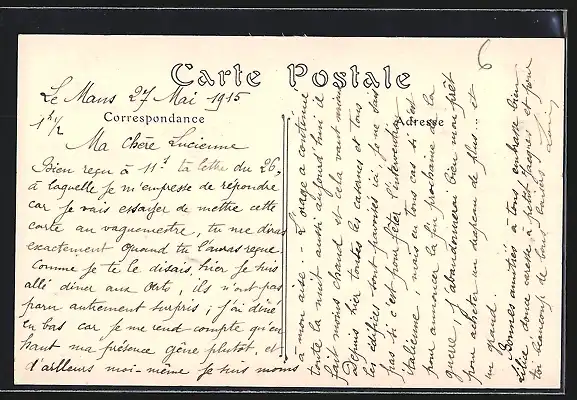 Carte Postale
Correspondance
Adresse
6
Le Mans 27 Mai 1915
1h 1/2
Ma Chère Lucienne
Bien reçu à 11h ta lettre du 26,
à laquelle je m'empresse de répondre
car je vais essayer de mettre cette
carte au vaguemestre, tu me diras
exactement quand tu l'auras reçue.
Comme je te le disais, hier je suis
allé dîner aux                , ils n'ont pas
paru autrement surpris ; j'ai dîné
en bas car je me rend compte qu'en
haut ma présence gêne plutôt, et
d'ailleurs moi-même je suis moins
à mon aise. - L'orage a continué
toute la nuit aussi aujourd'hui il
fait moins chaud et cela vaut mieux
Depuis hier toutes les casernes et tous
les édifices sont pavoisés ici, je ne sais
pas si c'est pour fêter l'intervention
italienne, mais en tous cas si c'est
pour annoncer la fin prochaine de la
guerre, j'abandonnerai bien mon prêt
pour acheter un drapeau de plus.. et
un grand.
Bonnes amitiés à tous, embrasse bien
Lilie, douce caresse à petit Jacques et pour
toi beaucoup de bons baisers